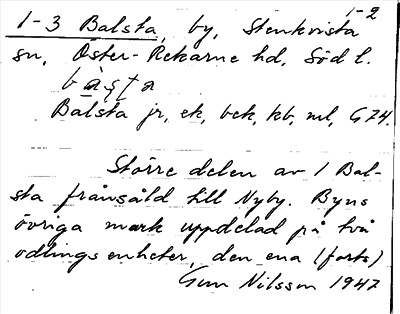 1-2
1-3 Balsta, by, Stenkvista
sn, Öster-Rekarne hd, Södl.
bàsta
Balsta jr, ek, bek, kb, ml, G74.
Större delen av 1 Bal-
sta frånsåld till Nyby. Byns
övriga mark uppdelad på två
odlingsenheter, den ena (forts)
Gun Nilsson 1947